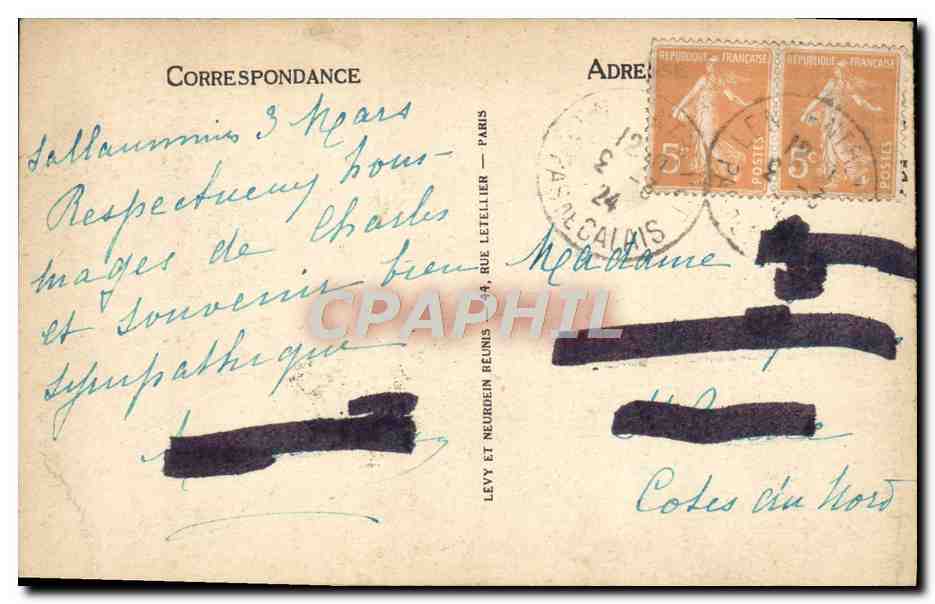 CORRESPONDANCE
Sallaumines 3 Mars
Respectueux hom-
mages de Charles
et souvenir bien
sympathique
LEVY ET NEURDEIN REUNIS — 44, RUE LETELLIER — PARIS
CPAPHIL
REPUBLIQUE FRANÇAISE
5c
POSTES
REPUBLIQUE FRANÇAISE
5c
POSTES
24
PAS DE CALAIS
Madame
Cotes du Nord